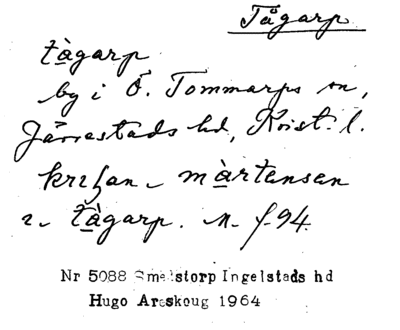 Tågarp
tàgarp
by i Ö. Tommarps sn,
Järrestads hd, Krist. l.
màrtensen
tàgarp. f. 94.
Nr 5088 Smelstorp Ingelstads hd
Hugo Areskoug 1964